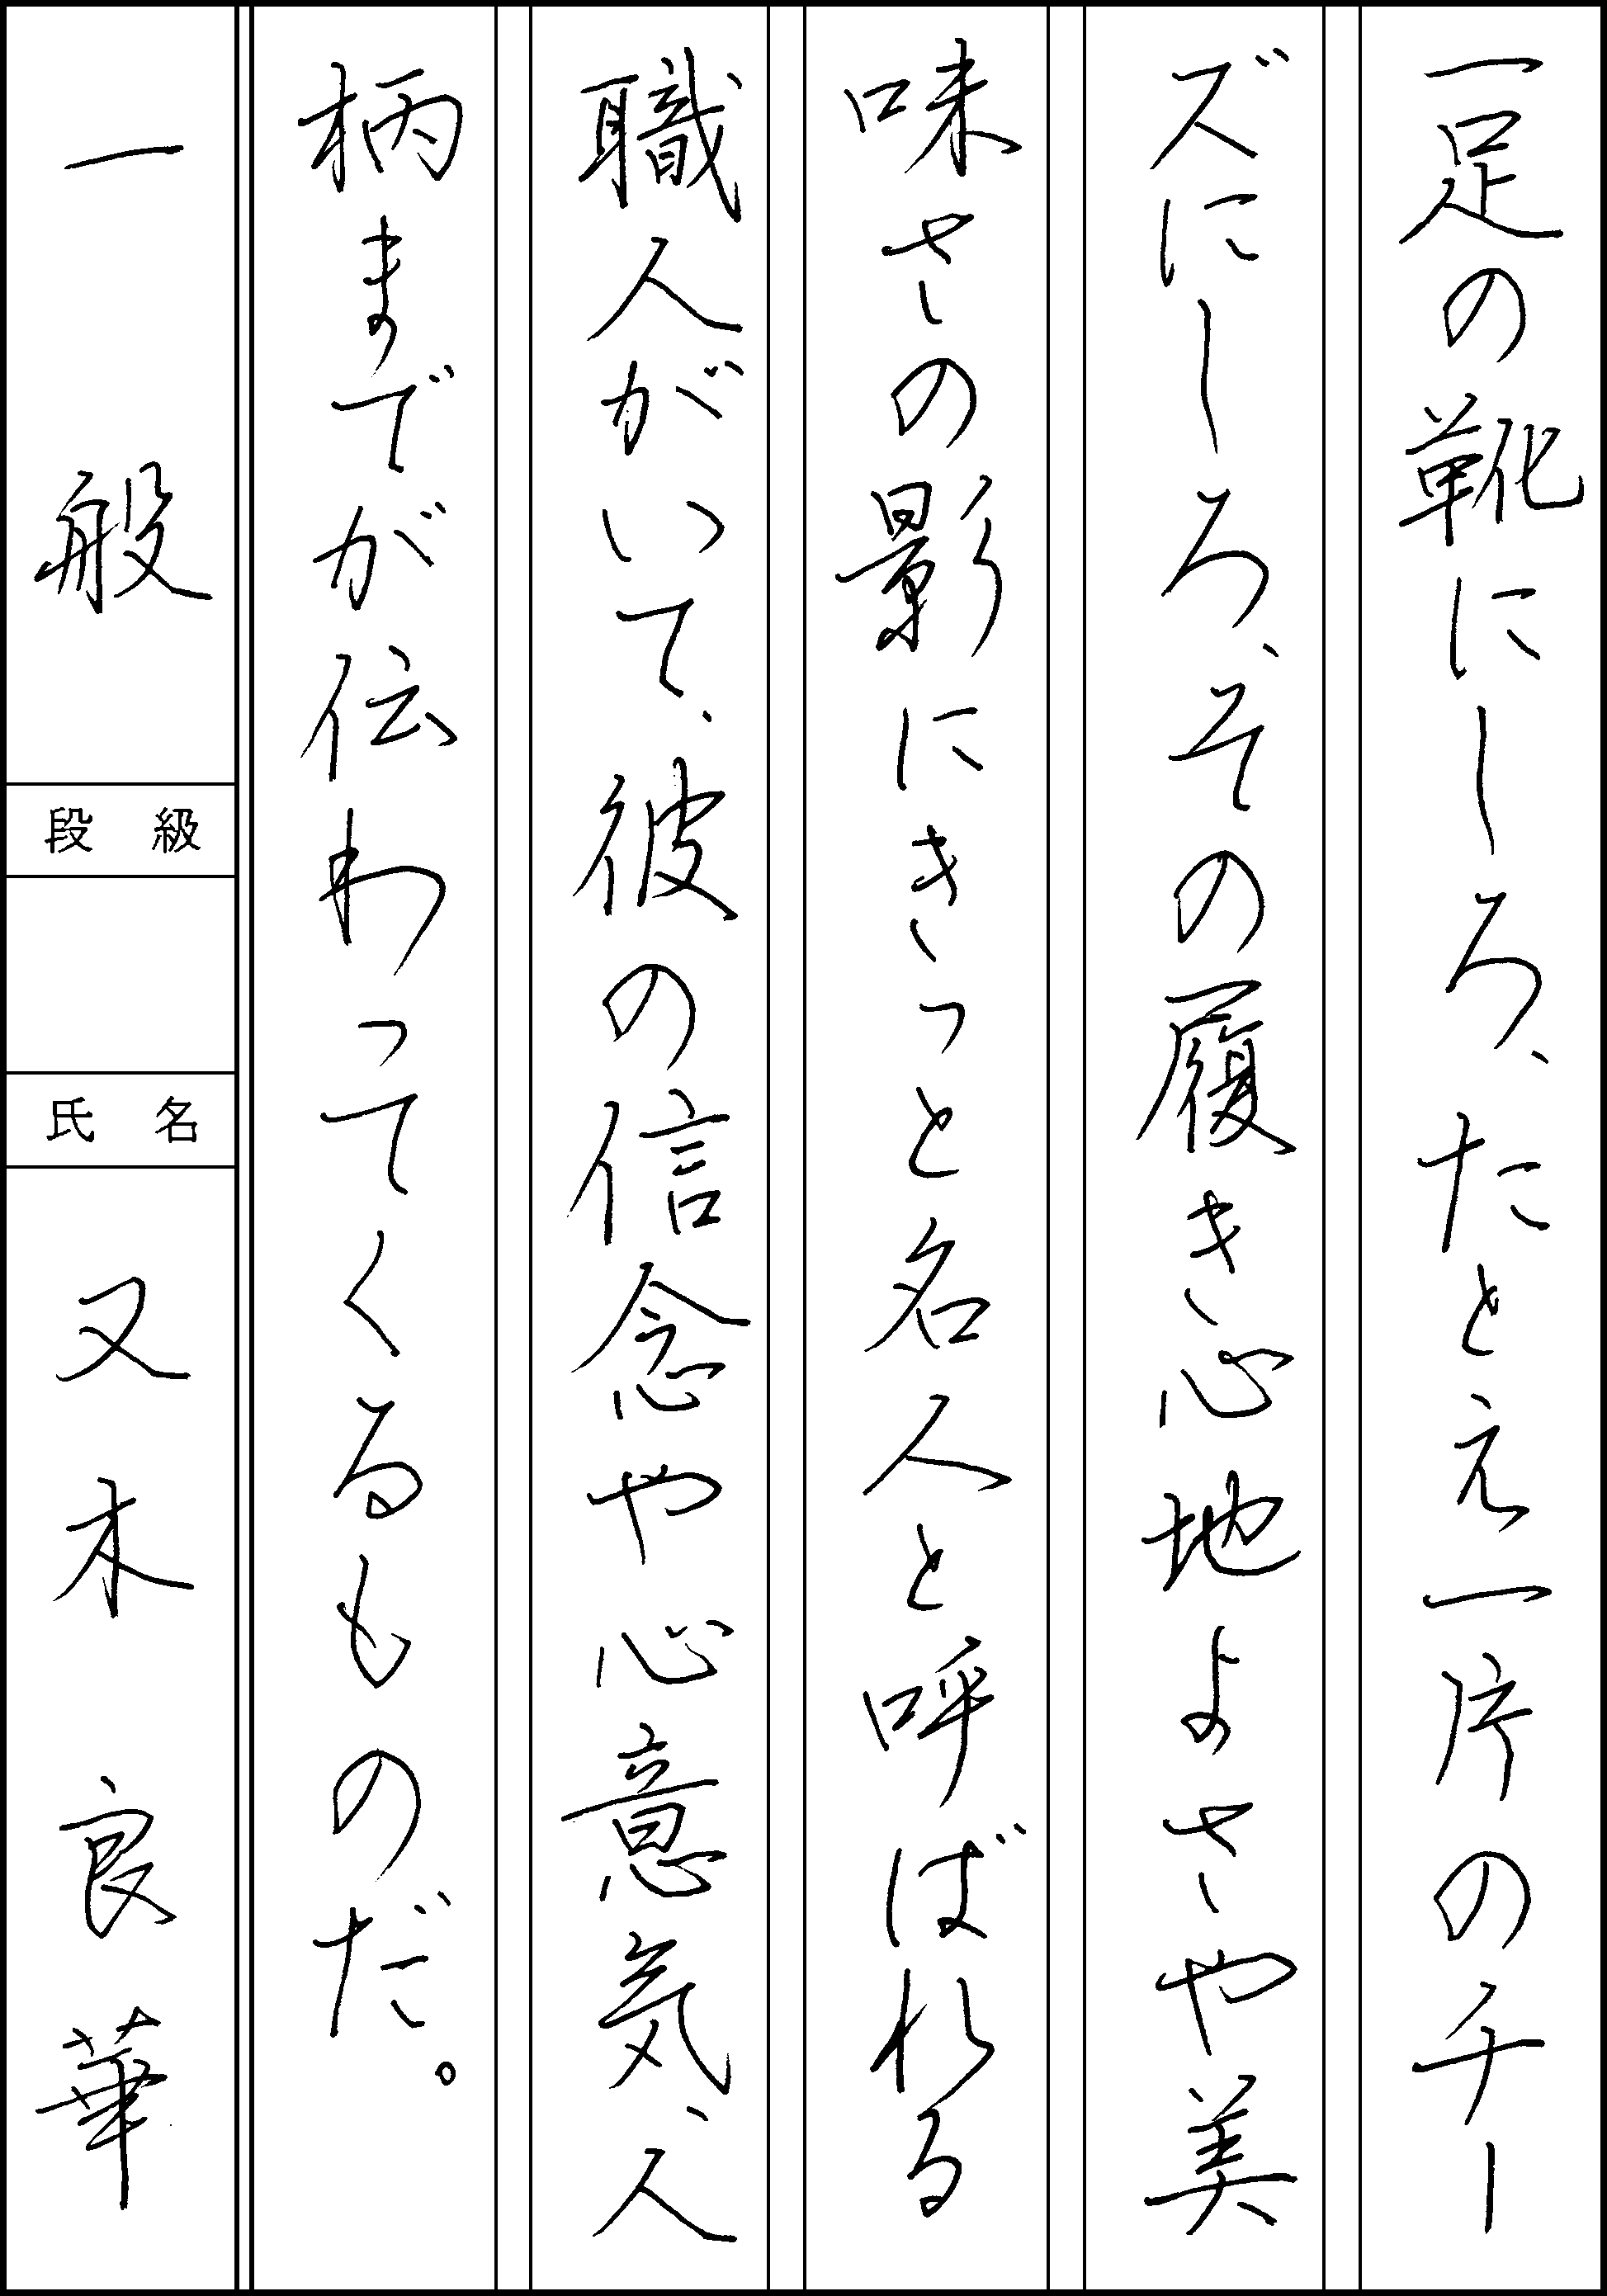 一足の靴にしろ、たとえ一片のチー
ズにしろ、その履き心地よさや美
味さの影にきっと名人と呼ばれる
職人がいて、彼の信念や心意気、人
柄までが伝わってくるものだ。
一般
段級
氏名
又木良華